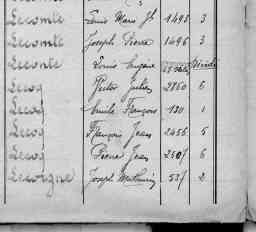 Lecomte Louis Marie Jh 1495 3
Lecomte Joseph Pierre 1496 3
Lecomte Louis Eugène
Lecoq Victor Julien 2860 5
Lecoq Emile François 130 1
Lecoq François Jean 2455 5
Lecoq Pierre Jean 2507 6
Lecorgne Joseph Mathurin 537 2